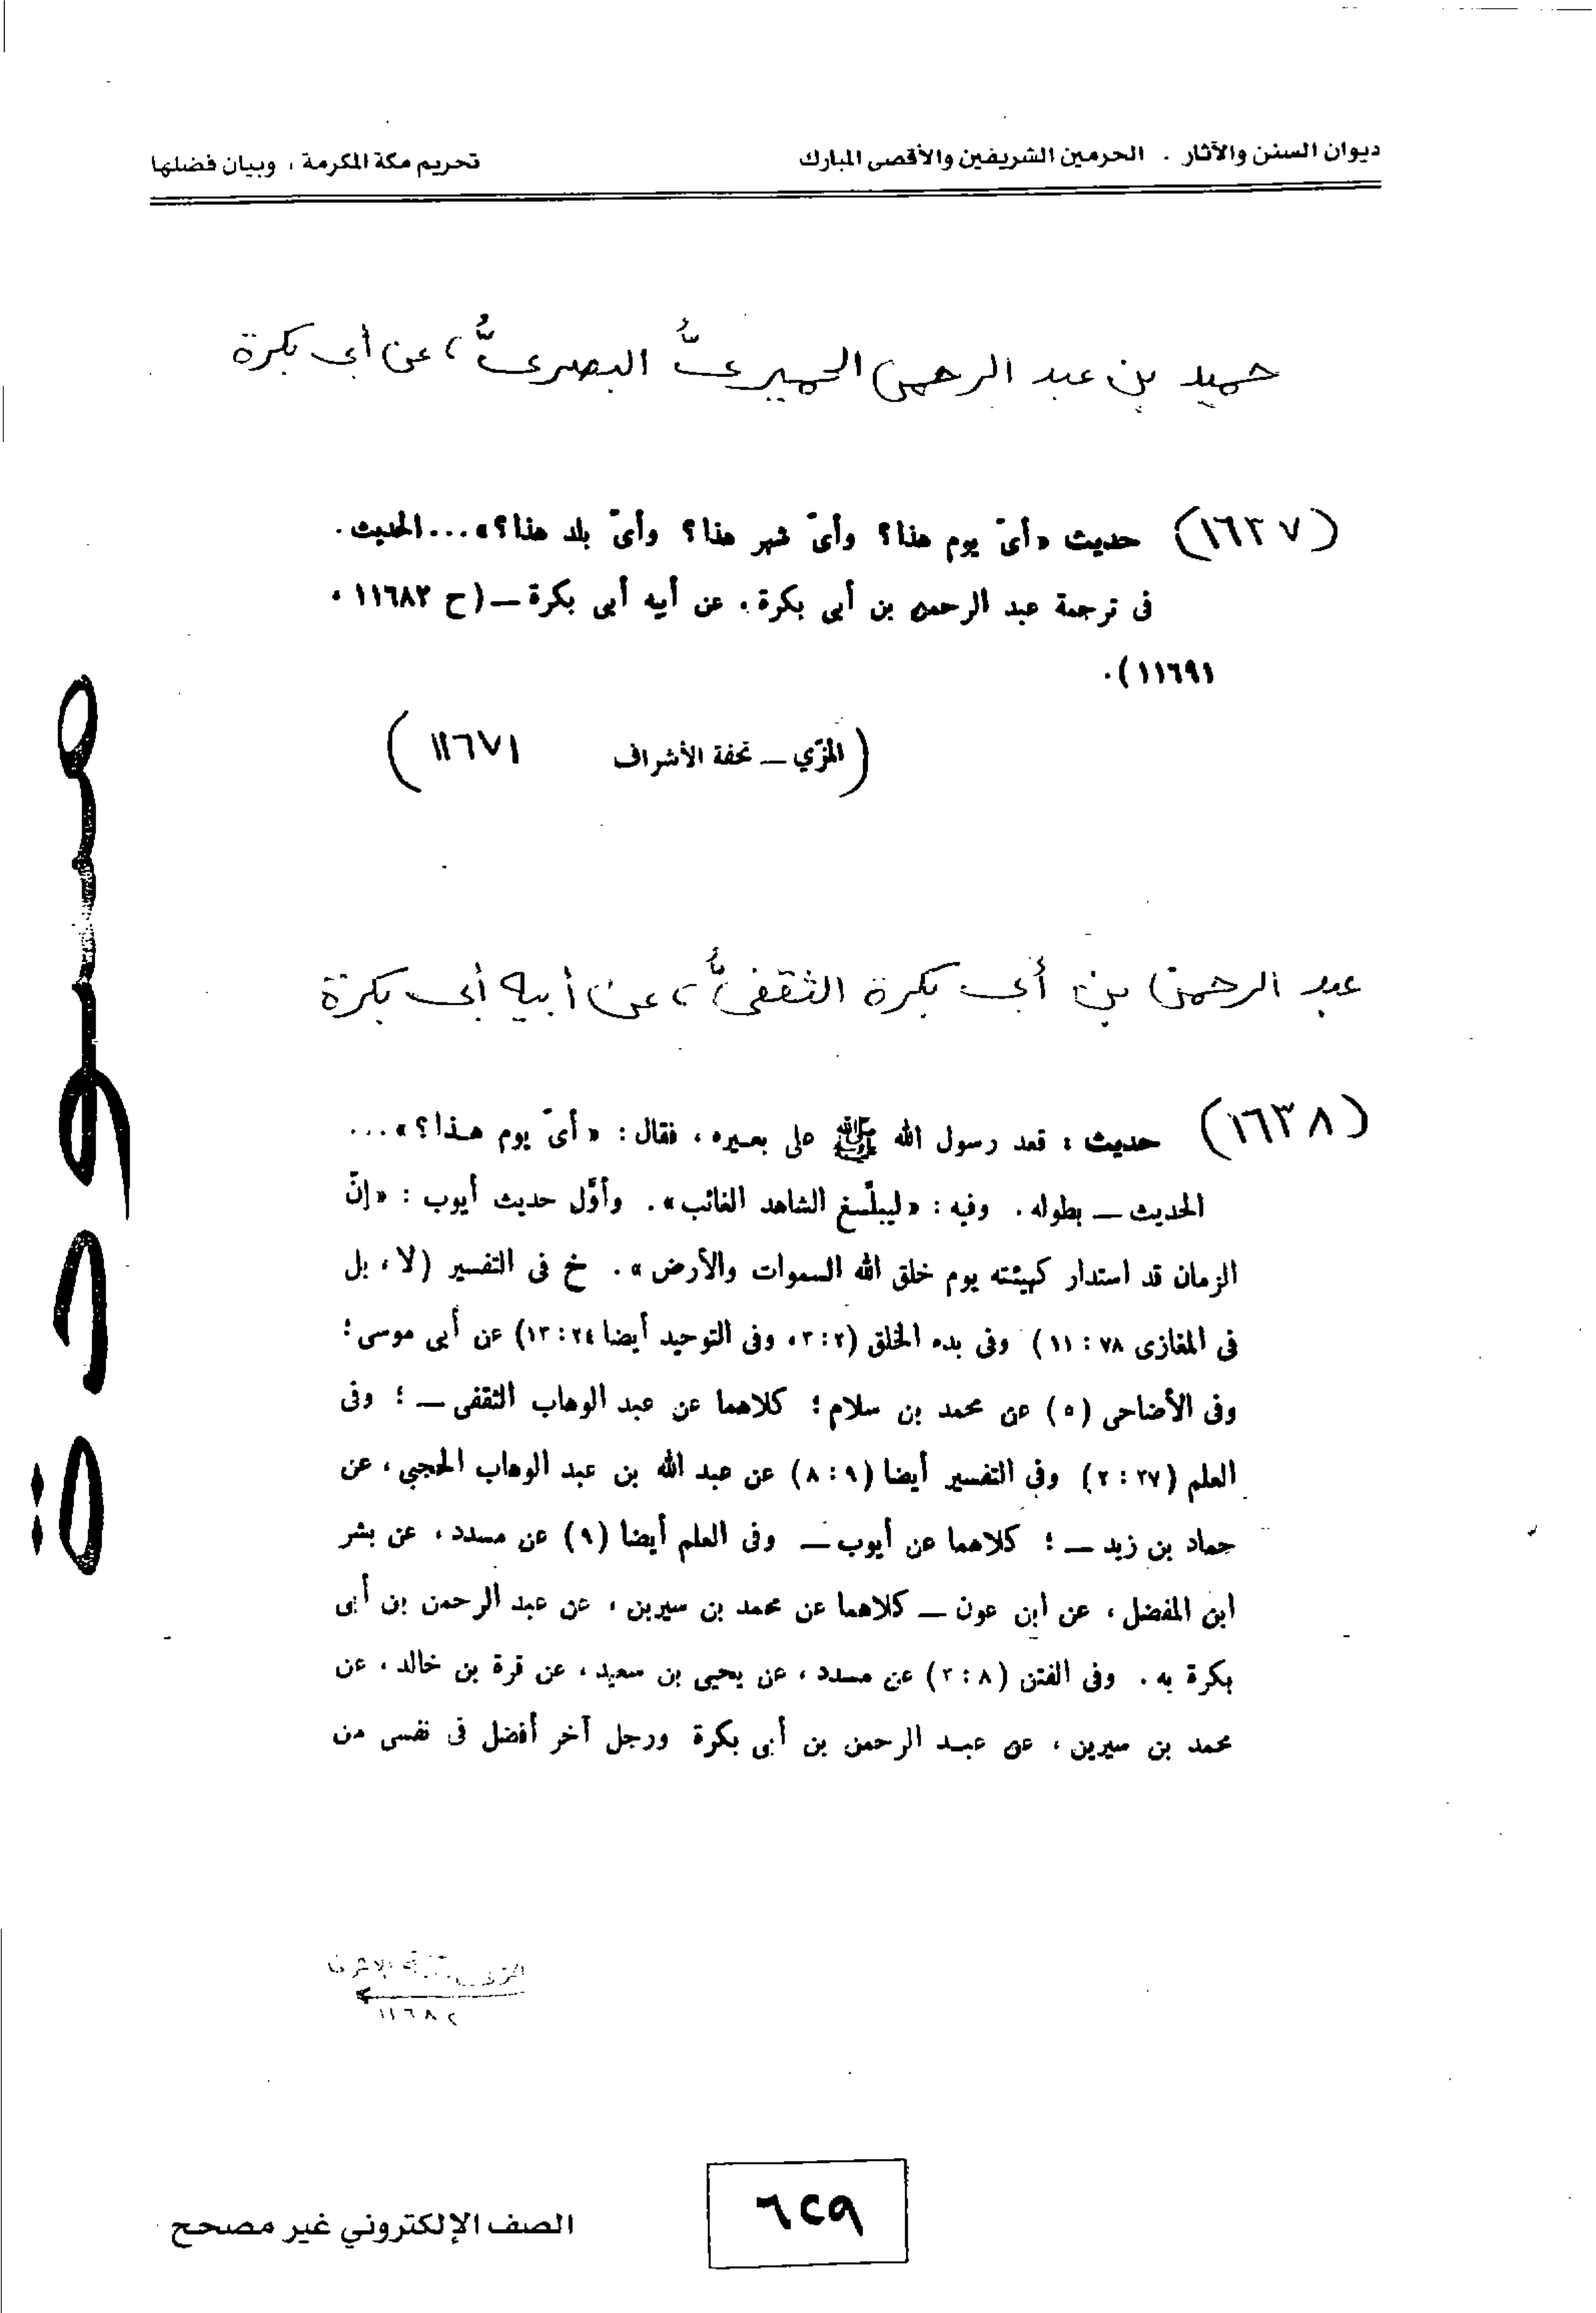 ديوان السنن والآثار . الحرمين الشريفين والأقصى المبارك تحريم مكة المكرمة ، وبيان فضلها
حميد بن عبد الرحمن الحميريُّ البصريُّ ، عن أبى بكرة
(١٦٣٧) حديث «أىّ يوم هذا؟ وأىّ شهر هذا؟ وأىّ بلد هذا؟» ... الحديث .
فى ترجمة عبد الرحمن بن أبى بكرة ، عن أبيه أبى بكرة ــ (ح ١١٦٨٢ ،
١١٦٩١) .
(المزّي ــ تحفة الأشراف ١١٦٧١)
عبد الرحمن بن أبى بكرة الثقفىُّ ، عن أبيه أبى بكرة
(١٦٣٨) حديث : قعد رسول الله ﷺ على بعيره ، فقال : «أىّ يوم هـذا؟» ...
الحديث ــ بطوله . وفيه : «ليبلّـغ الشاهد الغائب» . وأوّل حديث أيوب : «إنّ
الزمان قد استدار كهيئته يوم خلق الله السموات والأرض» . خ فى التفسير (لا ، بل
فى المغازى ٧٨ : ١١) وفى بدء الخلق (٢ : ٣ ، وفى التوحيد أيضا ٢٤ : ١٣) عن أبى موسى ؛
وفى الأضاحى (٥) عن محمد بن سلام ؛ كلاهما عن عبد الوهاب الثقفى ــ ؛ وفى
العلم (٣٧ : ٢) وفى التفسير أيضا (٩ : ٨) عن عبد الله بن عبد الوهاب الحجبي ، عن
حماد بن زيد ــ ؛ كلاهما عن أيوب ــ وفى العلم أيضا (٩) عن مسدد ، عن بشر
ابن المفضل ، عن ابن عون ــ كلاهما عن محمد بن سيرين ، عن عبد الرحمن بن أبى
بكرة به . وفى الفتن (٨ : ٣) عن مسدد ، عن يحيى بن سعيد ، عن قرة بن خالد ، عن
محمد بن سيرين ، عن عبـد الرحمن بن أبى بكرة ورجل آخر أفضل فى نفسى من
١١٦٨٢
مسودة
٦٢٩
الصف الإلكتروني غير مصحح